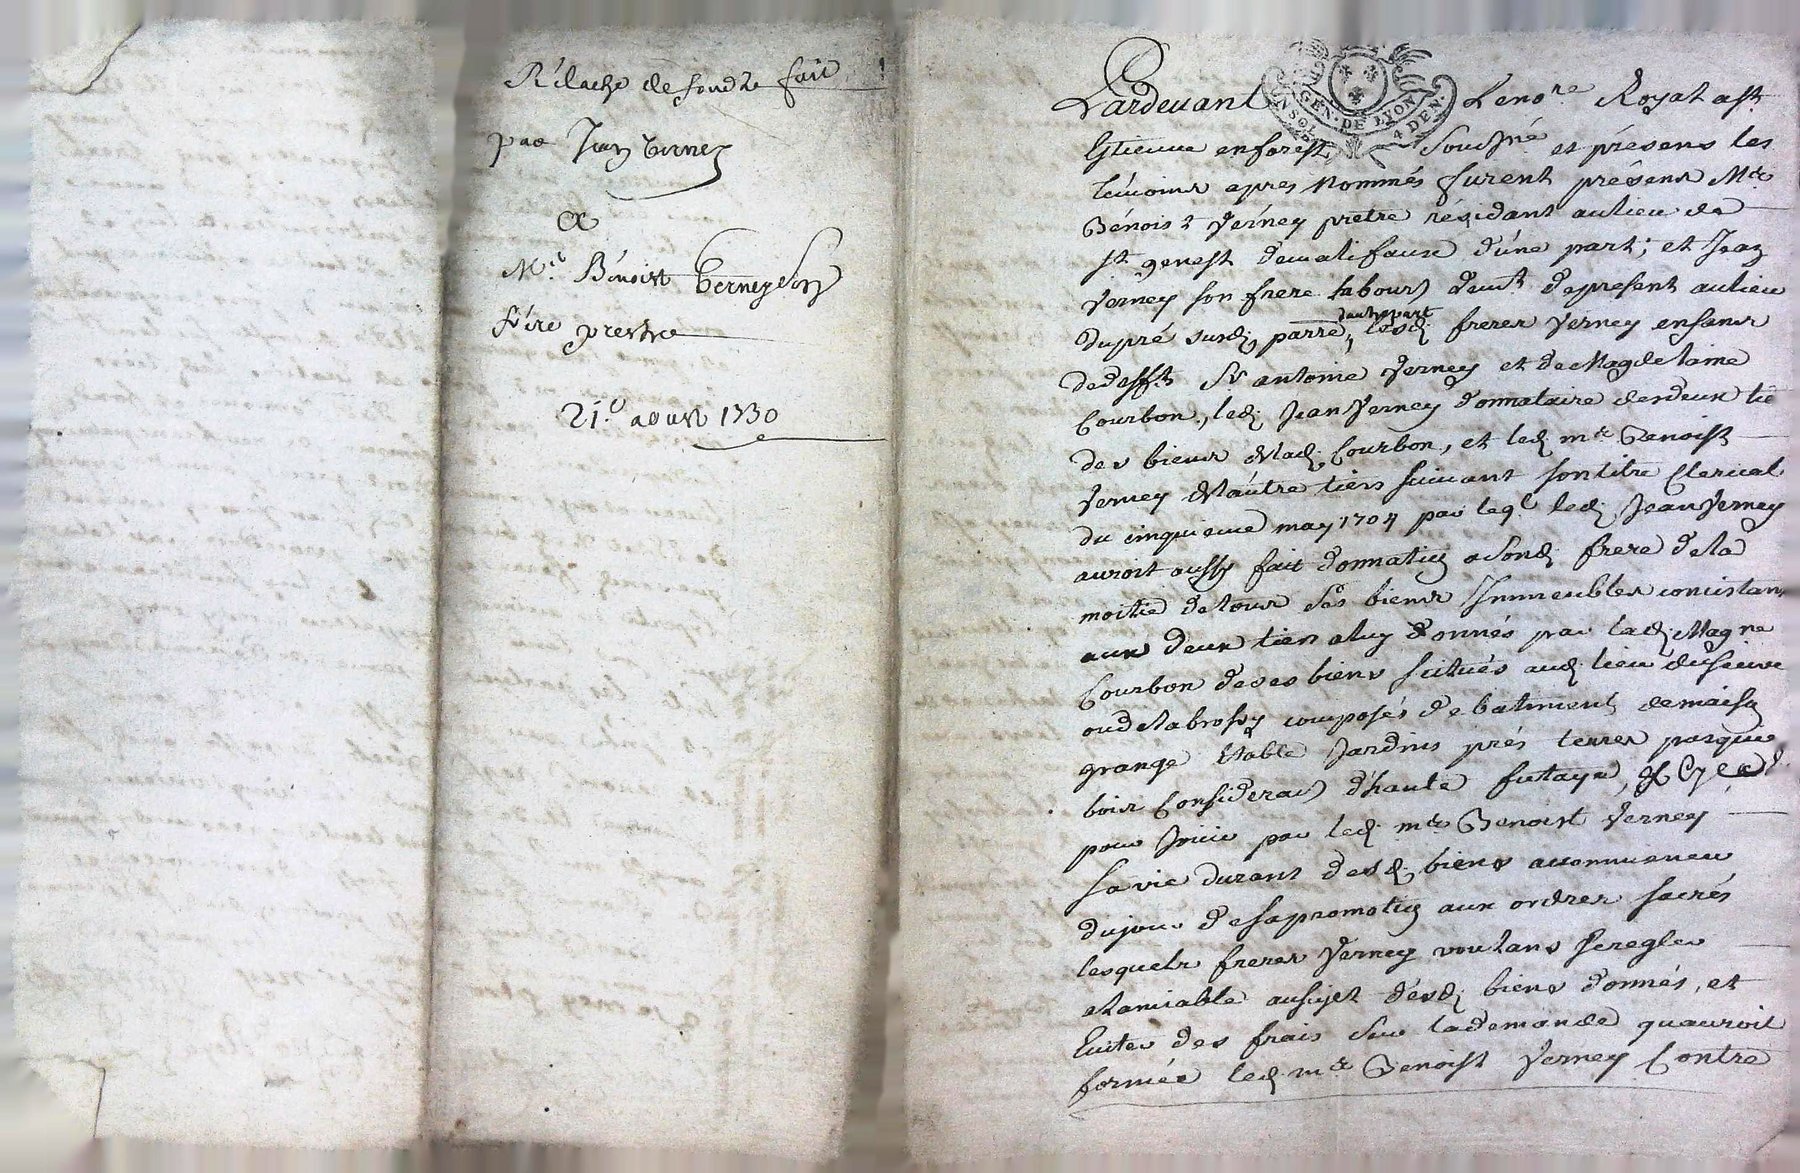 Rélache de fondz fait
par Jean Verney
a
Mre Bénoist Verney son
frére prestre
21e aoust 1730
GEN · DE LYON
SOL 4 DEN
Pardevant Le nore Royal a st
Etienne en forest soussné et présens les
témoins apres Nommés furent présens Mre
Bénoist Verney pretre résidant au lieu de
st genest demalifaux d'úne part; et Jean
Verney son frere labour) demt de present au lieu
dupré susd. parre, dautre part lesd. freres Verney enfans
de defft Sr antoine Verney et de Magdelaine
Courbon, led. Jean Verney donnataire des deux tié
des biens de lad. Courbon, et led. mre Benoist
Verney de l'autre tiers suivant son titre Clerical
du cinquieme may 1704 par leql led. Jean Verney
auroit aussy fait donnation a sond. frere de la
moitié de tous ses biens Immeubles concistans
aux deux tiers a luy donnés par lad. Magne
Courbon de ses biens situés aud. lieu
ou de la brosse composés de batiment de maison
grange Etable Jardins prés terres pasquier
bois Considera) d'haute futaye,
pour Jouir par led. mre Benoist Verney
sa vie durant desd. biens a commencer
du jour de sa promotion aux ordres sacrés
lesquels freres Verney voulans se regler
a l'amiable au sujet desd. biens donnés, et
Eviter des frais sur la demande qu'auroit
formée led. mre Benoist Verney Contre